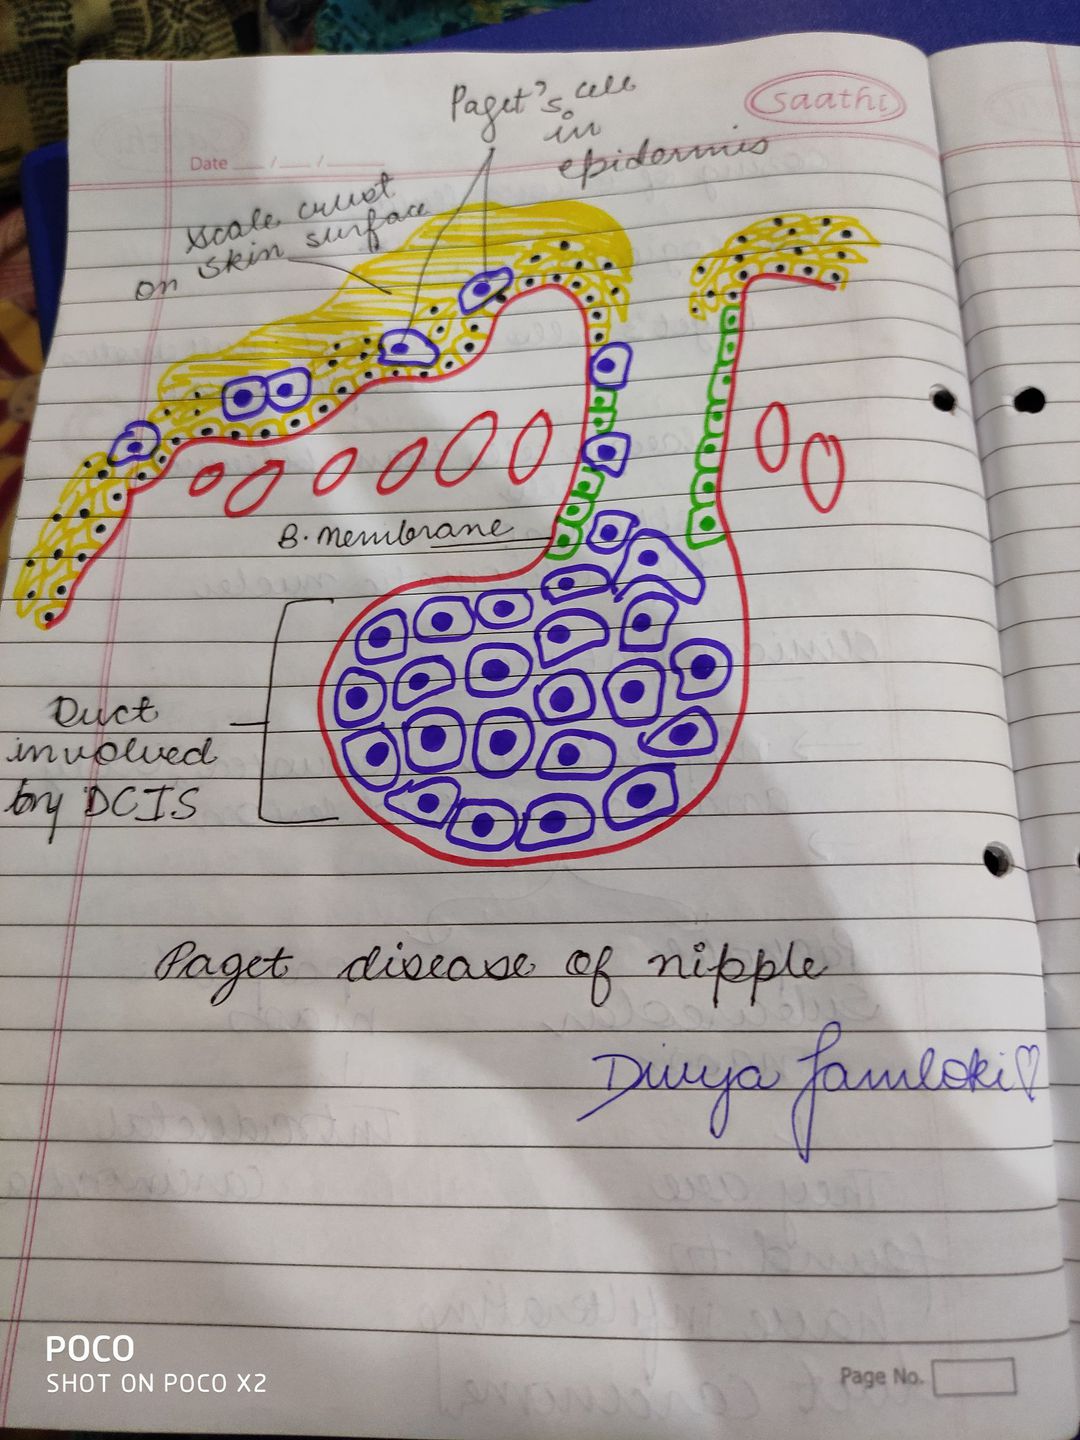 Paget's cell
in
epidermis
saathi
Date __/__/____
scale crust
on skin surface
B. Membrane
Duct
involved
by DCIS
Paget disease of nipple
Divya Jamloki
POCO
SHOT ON POCO X2
Page No.